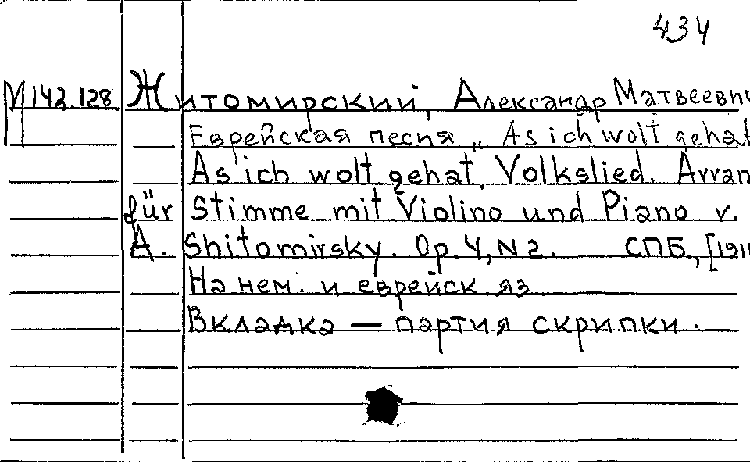 434
М 142.128 Житомирский, Александр Матвеевич
Еврейская песня „As ich wolt gehat
As ich wolt gehat. Volkslied. Arran
für Stimme mit Violino und Piano v.
A. Shitomirsky. Op. 4, N2. СПБ., [191
На нем. и еврейск яз
Вкладка — партия скрипки.